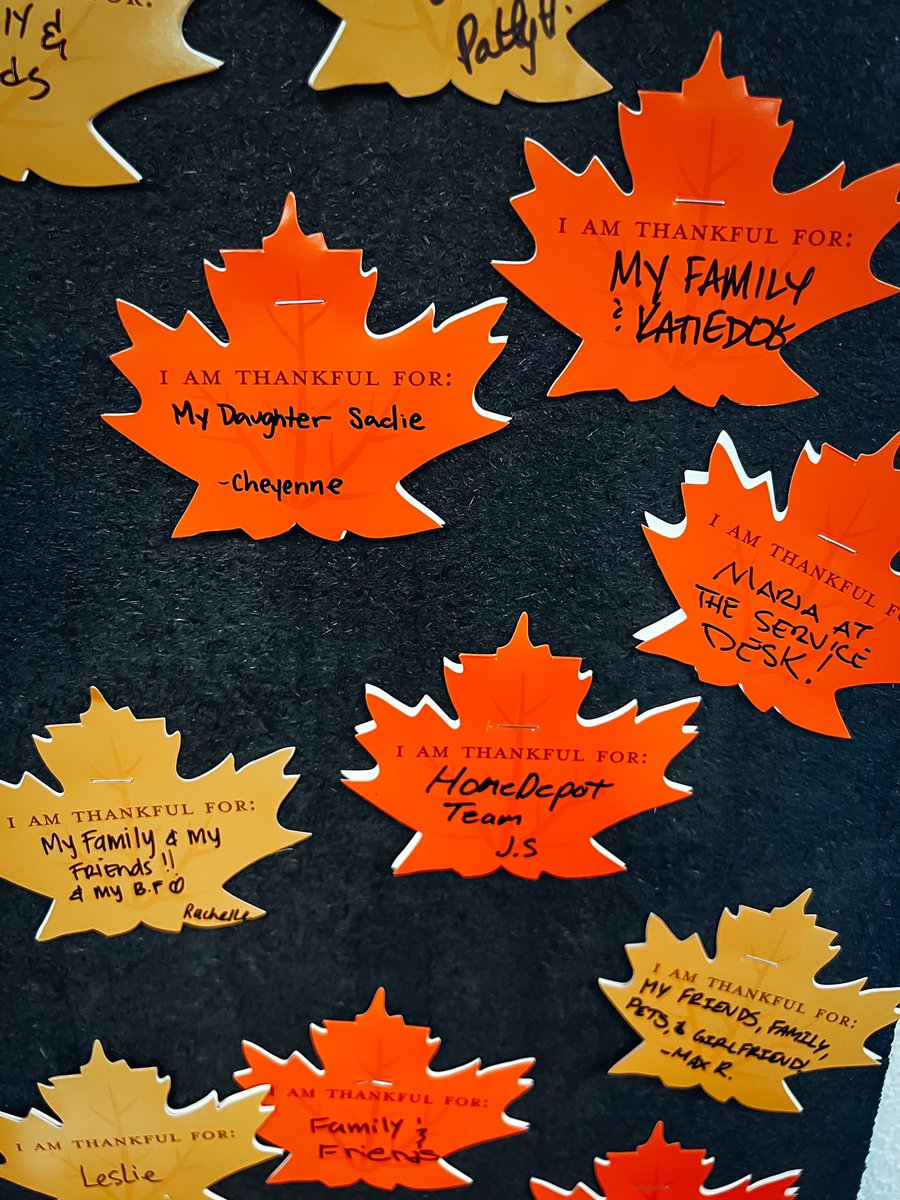 &
Patty H.
I AM THANKFUL FOR:
MY FAMILY
& KATIEDOG
I AM THANKFUL FOR:
My Daughter Sadie
-Cheyenne
I AM THANKFUL
MARIA AT
THE SERVICE
DESK!
I AM THANKFUL FOR:
HomeDepot
Team
J.S
I AM THANKFUL FOR:
My Family & my
FRIENDS !!
& my B.F ♡
Rachelle
I AM THANKFUL FOR:
MY FRIENDS, FAMILY,
PETS, & GIRLFRIEND!
-MAX R.
I AM THANKFUL FOR:
Family &
Friends
I AM THANKFUL FOR:
Leslie